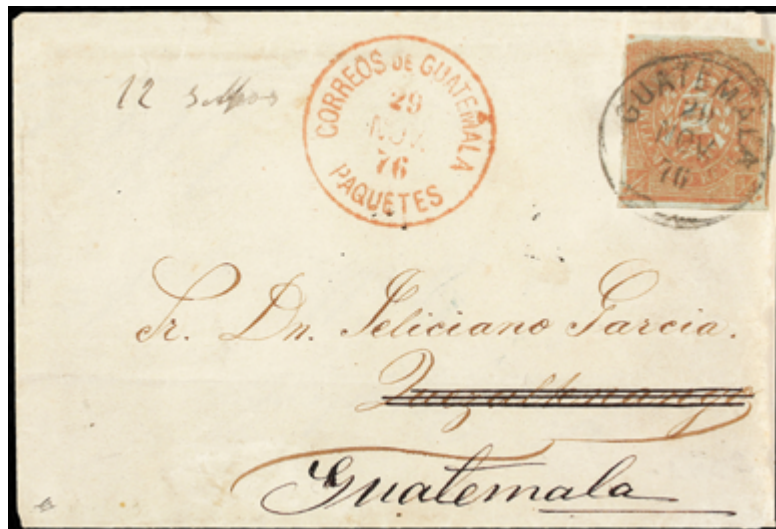 12 sellos
CORREOS DE GUATEMALA
29
NOV.
76
PAQUETES
GUATEMALA
29
NOV
76
Sr. Dn. Feliciano Garcia.
Quezaltenango
Guatemala